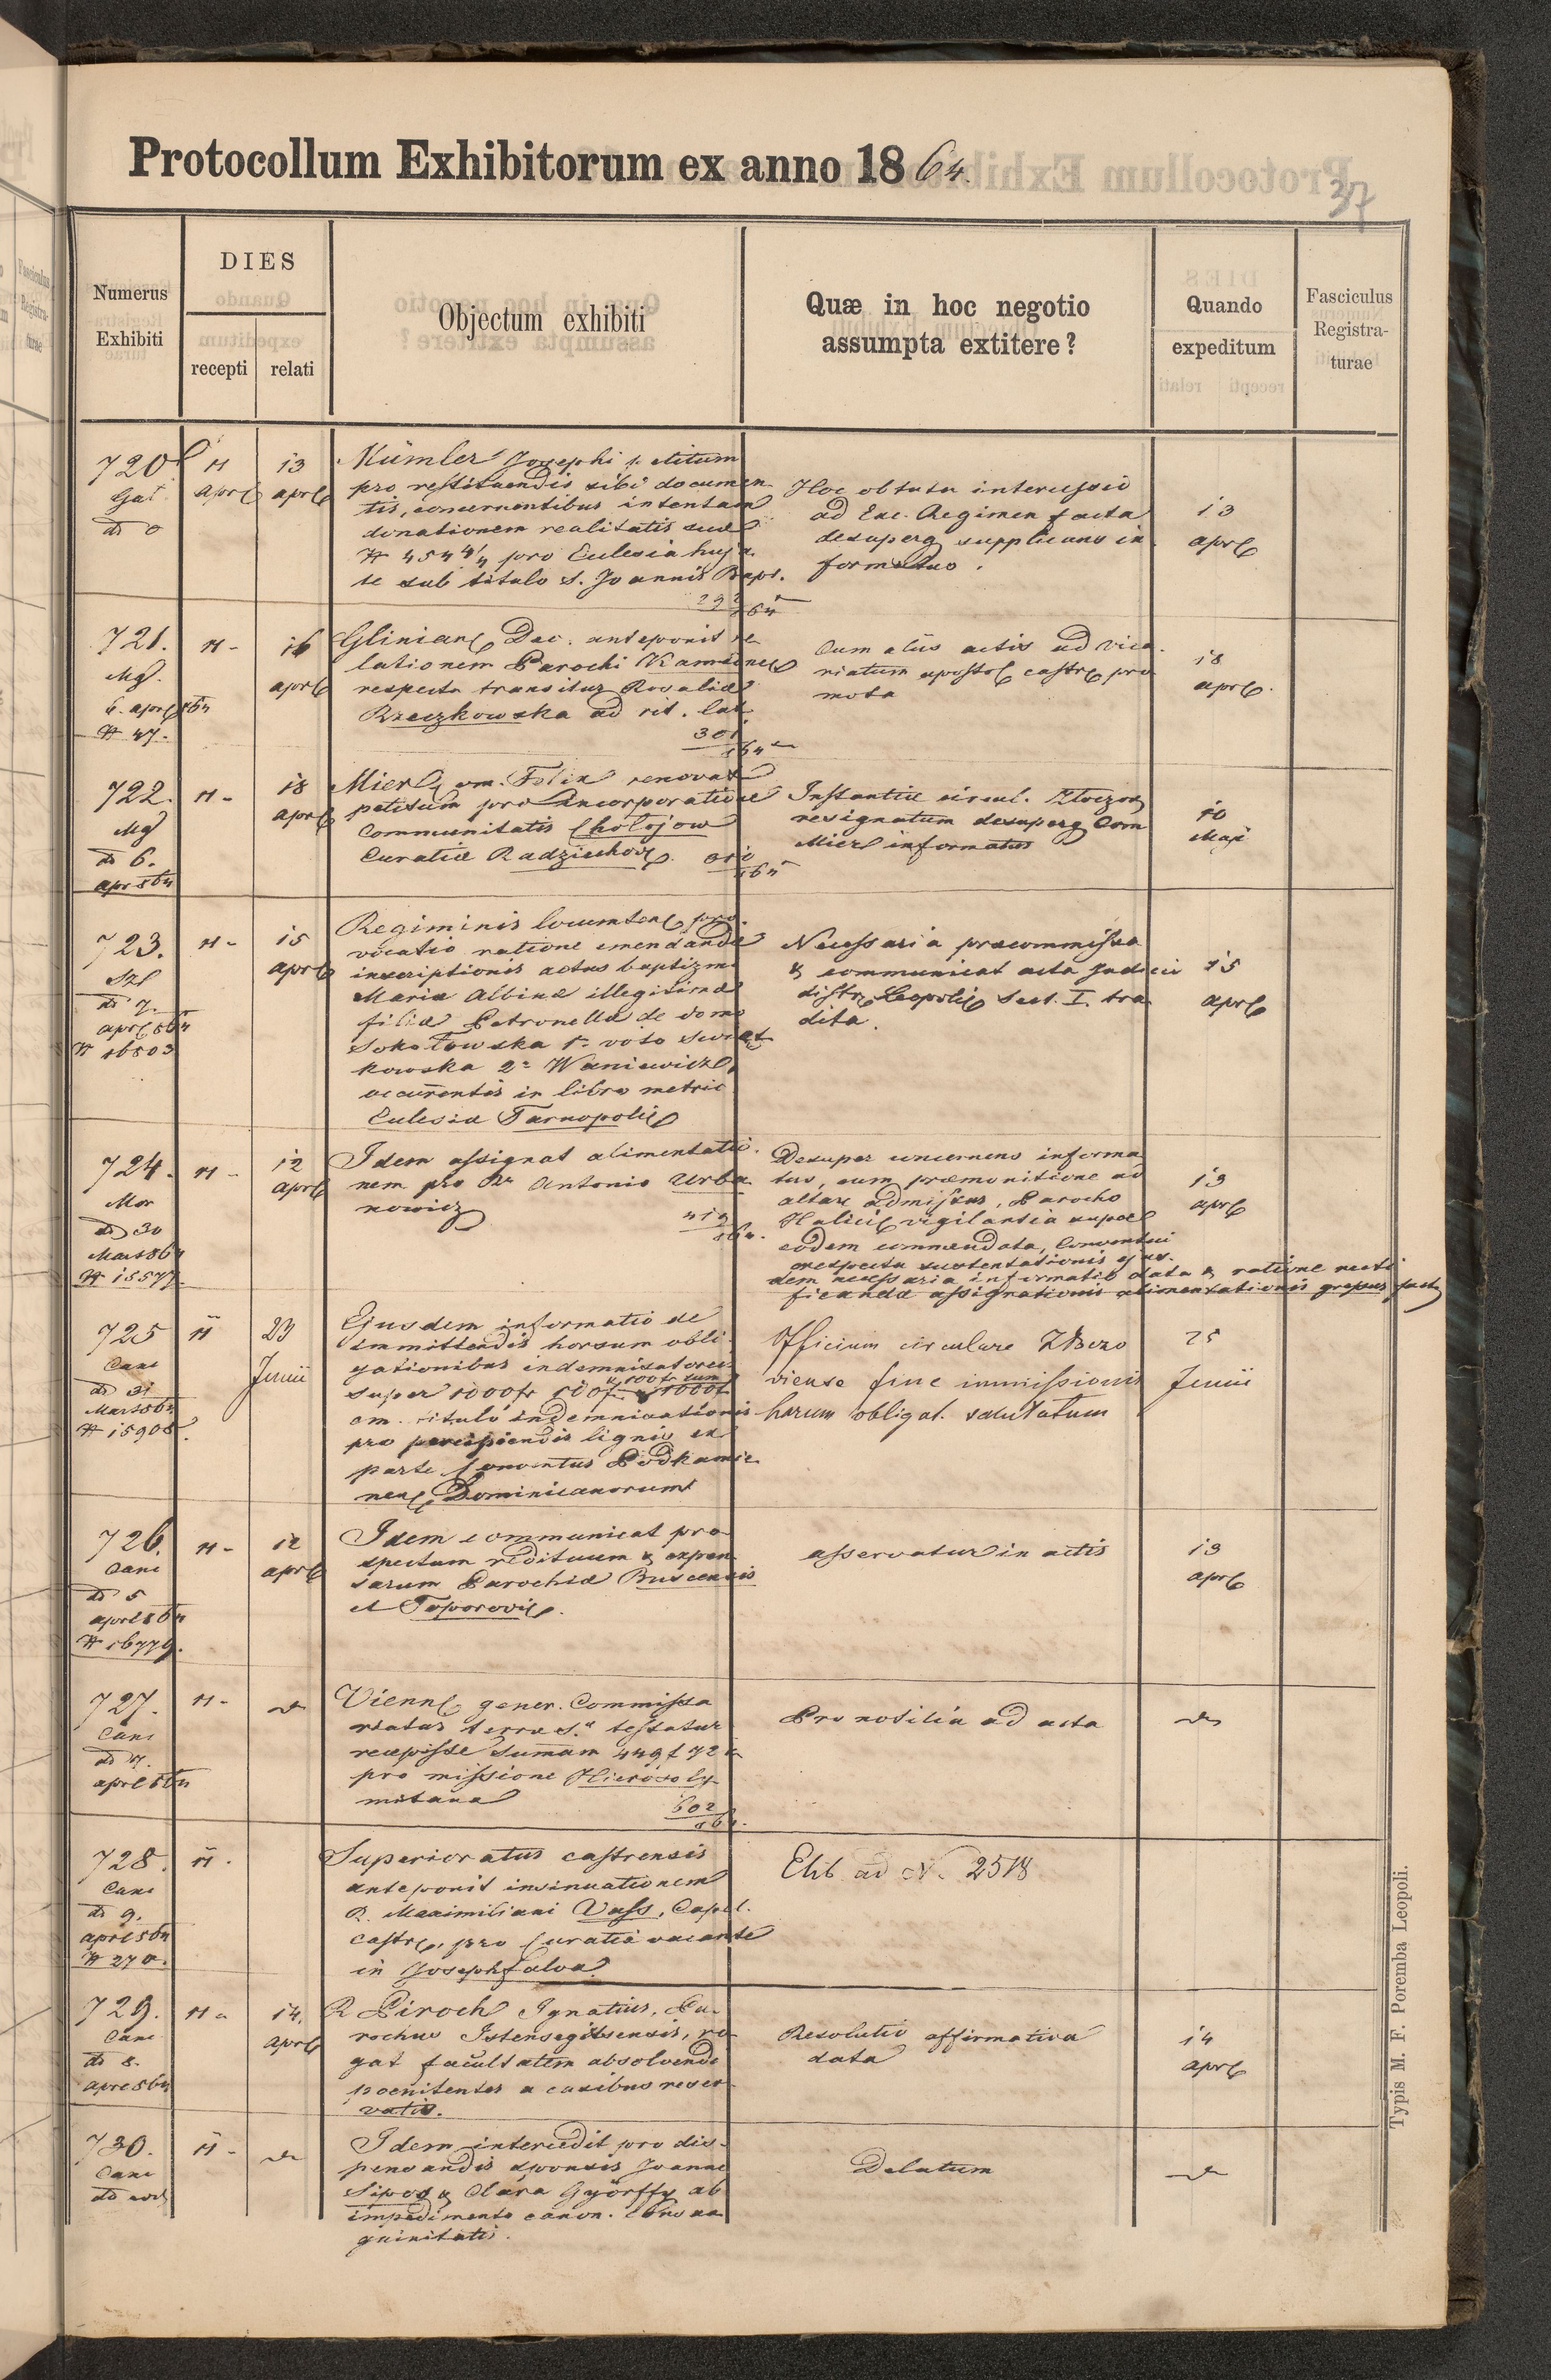 Protocollum Exhibitorum ex anno 1864.
37
Numerus Exhibiti
DIES
recepti
relati
Objectum exhibiti
Quæ in hoc negotio assumpta extitere?
Quando expeditum
Fasciculus Registraturae
720
Gal
dt 0
11 aprl
13 aprl
Kümler Josephi petitum
pro restituendis sibi documen
tis, concernentibus intentam
donationem realitatis suæ
N 454 4/4 pro Ecclesia huja
te sub titulo S. Joannis Bapt.
292/864
Hoc obtutu intercessio
ad Exc. Regimen facta
desuperq supplicans in
formatus.
13
aprl
721.
Mgl.
6. aprl 864
N 47.
11 -
16
aprl
Glinian Dec. anteponit re
lationem Parochi Kamionen
respectu transitus Rosaliæ
Rzeczkowska ad rit. lat.
301/864
Cum aliis actis ad vica
riatum apostol castr pro
mota
18
aprl.
722.
Mgl
dt 6.
apr 864
11 -
18
aprl
Mier com. Felix renovat
petitum pro incorporatione
Communitatis Chołojow
Curatiæ Radziechov.
310/864
Instantiæ circul. Zloczov
resignatum desuperq Com
Mier informatus
10
Maji
723.
dt 7.
aprl 864
N 16803
11 -
15
aprl
Regiminis locumten pro
vocatio ratione emendandæ
inscriptionis actus baptizmi
Mariæ Albinæ illegitimæ
filiæ Petronellæ de domo
Sokołowska 1º voto Swiąt
kowska 2º Waniewicz
occurentis in libro metric
Ecclesiæ Tarnopoli
Necessaria præcommissa
& communicat acta Judicii
distr Leopoli Sect. I. tra
dita.
15
aprl
724.
Mor
dt 30
Mart 864
N 15577.
11 -
12
aprl
Idem assignat alimentatio
nem pro Dr Antonio Urba
nowicz
419/864.
Desuper concernens informa
tus, cum præmonitione ad
altare admissus, Parocho
Halici vigilantia super
eodem commendata, Conventui
respectu sustentationis ejus
dem necessaria informatio data & ratione recti
ficandæ assignationis alimentationis gressus fact
725
Cane
dt 31
Mart 864
N 15908.
11
23
Junii
Ejusdem informatio de
immittendis horsum obli
gationibus indemnisatoriis
super 1000fr 100f
om. titulo indemnisationis
pro percipiendis lignis ex
parte Conventus Podkamie
nen Dominicanorum
Officium circulare Złoczo
viense fine immissionis
harum obligat. salutatum
25
Junii
726.
Cane
dt 5
aprl 864
N 16779.
11 -
12
aprl
Idem communicat pro
spectum redituum & expen
sarum Parochiæ Buscensis
et Toporovi.
asservatur in actis
13
aprl
727.
Cane
dt 4.
aprl 864
11 -
Vienn gener. Commissa
riatus terræ S. testatur
recepisse sumam 449 f 72 x
pro missione Hierosoly
mitana
602/864.
Pro notitia ad acta
728.
Cane
dt 9.
aprl 864
N 270.
11 -
Superioratus castrensis
anteponit insinuationem
R. Maximiliani Vass, Capel.
castr., pro Curatia vacante
in Josephfalva
Exh. ad N. 2518
729.
Cane
dt 8.
aprl 864
11 -
14.
aprl
R Piroch Ignatius, Pa
rochus Istensegitsensis, ro
gat facultatem absolvendi
poenitentes a casibus reser
vatis.
Resolutio affirmativa
data
14
aprl
730.
Cane
dt eod
11 -
Idem intercedit pro dis
pensandis sponsis Joanne
Sipos & Clara Györffy ab
impedimento canon. consan
guinitatis.
Delatum
Typis M. F. Poremba Leopoli.